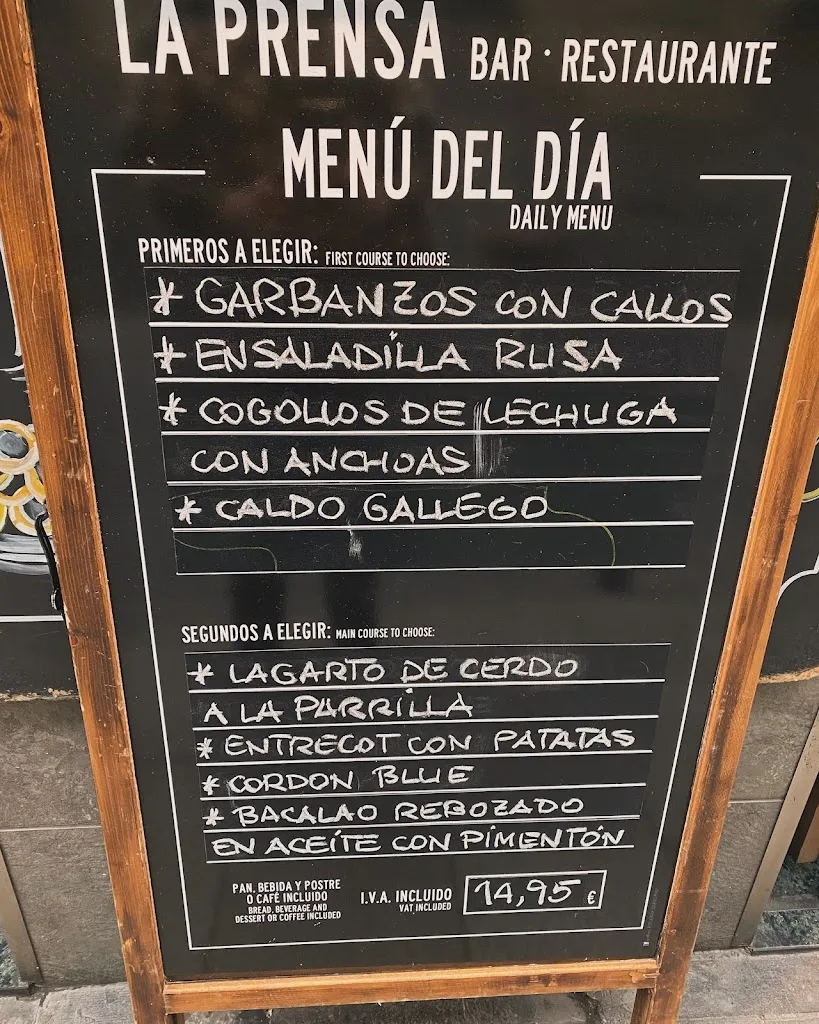 LA PRENSA BAR · RESTAURANTE
MENÚ DEL DÍA
DAILY MENU
PRIMEROS A ELEGIR: FIRST COURSE TO CHOOSE:
* GARBANZOS CON CALLOS
* ENSALADILLA RUSA
* COGOLLOS DE LECHUGA
CON ANCHOAS
* CALDO GALLEGO
SEGUNDOS A ELEGIR: MAIN COURSE TO CHOOSE:
* LAGARTO DE CERDO
A LA PARRILLA
* ENTRECOT CON PATATAS
* CORDON BLUE
* BACALAO REBOZADO
EN ACEITE CON PIMENTÓN
PAN, BEBIDA Y POSTRE
O CAFÉ INCLUIDO
BREAD, BEVERAGE AND
DESSERT OR COFFEE INCLUDED
I.V.A. INCLUIDO
VAT INCLUDED
14,95 €